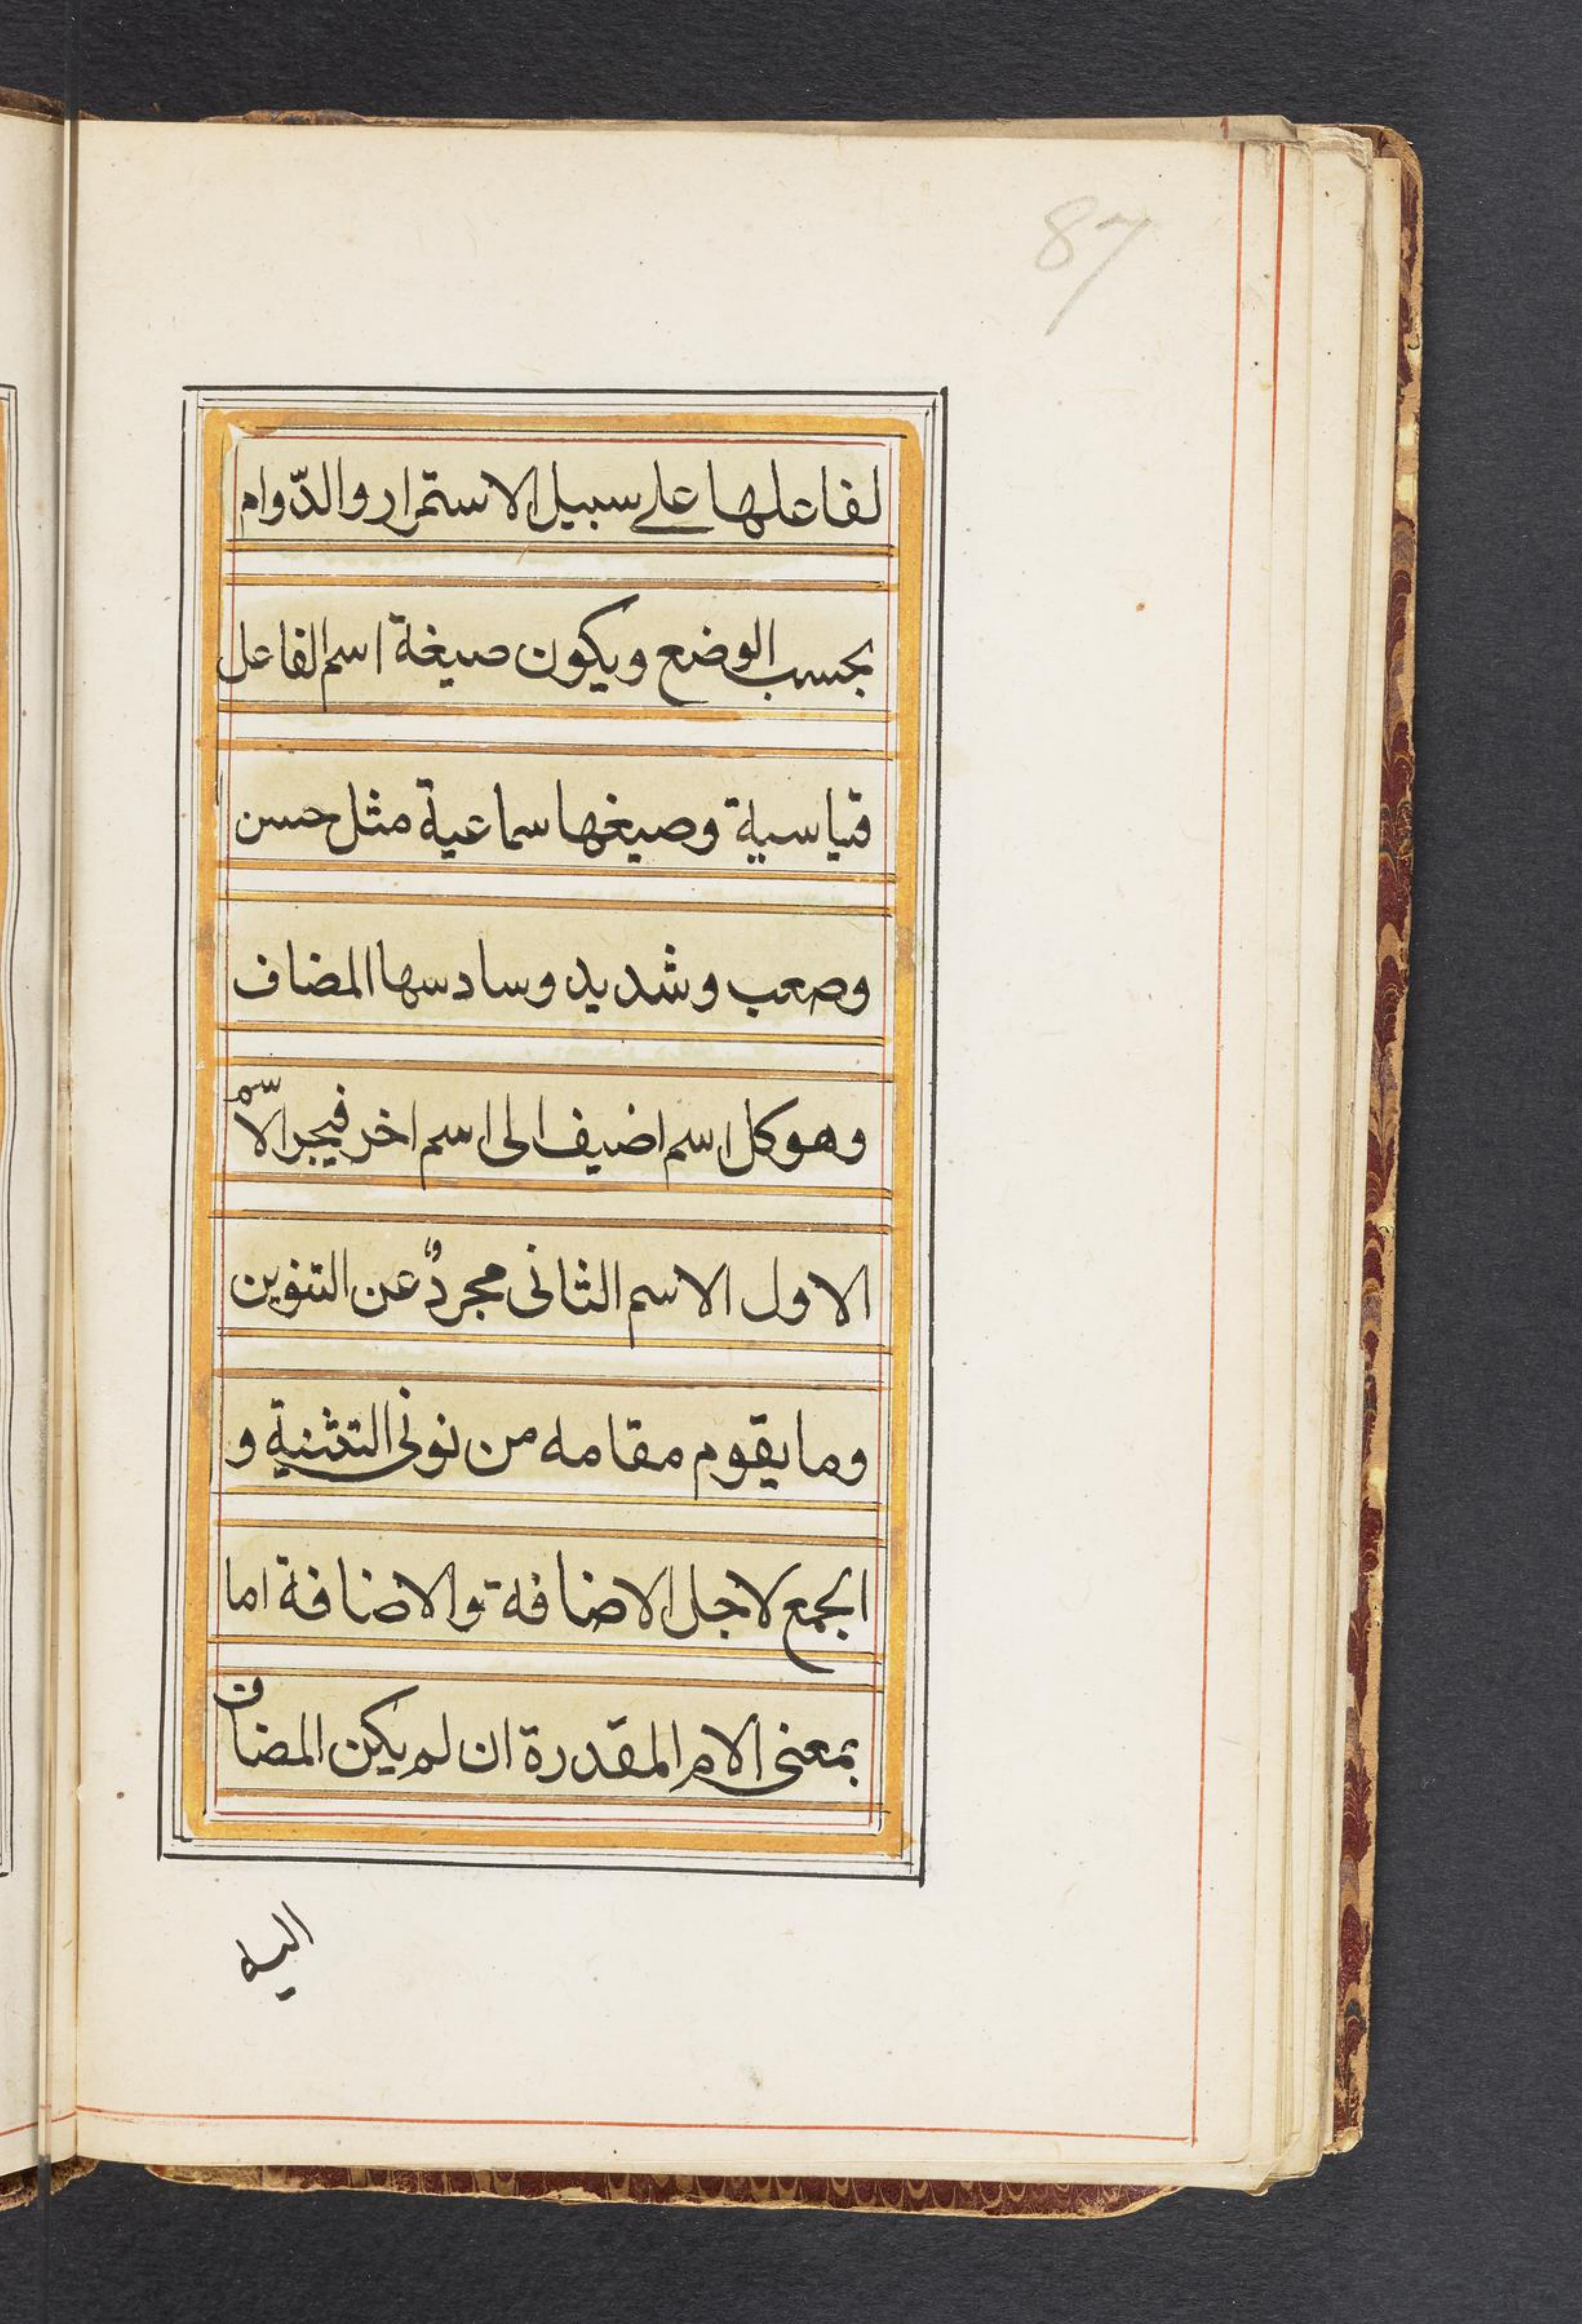 87
لفاعلها على سبيل الاستمرار والدّوام
بحسب الوضع ويكون صيغة اسم الفاعل
قياسية وصيغها سماعية مثل حسن
وصعب وشديد وسادسها المضاف
وهو كل اسم اضيف الى اسم اخر فيجر الاسم
الاول الاسم الثانى مجردٌ عن التنوين
وما يقوم مقامه من نونى التثنية و
الجمع لاجل الاضافة والاضافة اما
بمعنى الام المقدرة ان لم يكن المضاف
اليه